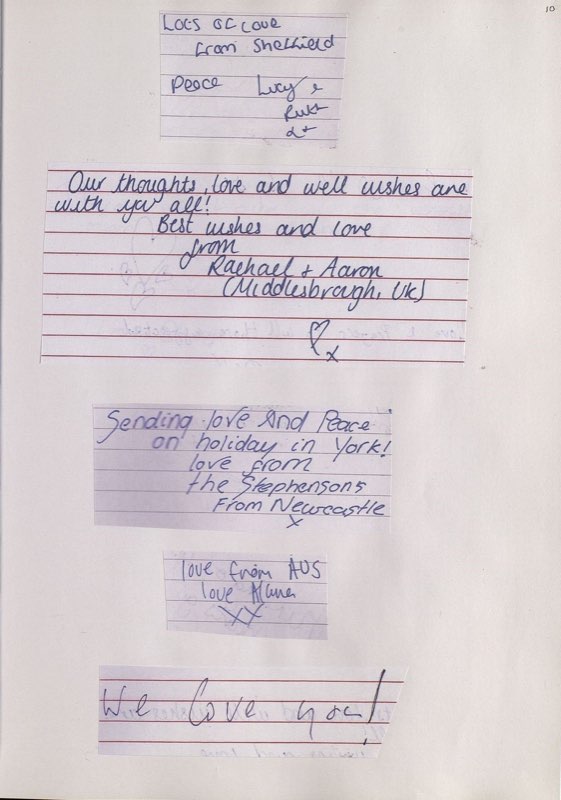 10
Lots of Love
from Sheffield
Peace Lucy &
Ruth
Our thoughts, love and well wishes are
with you all!
Best wishes and love
from
Rachael + Aaron
(Middlesbrough, UK)
x
Sending love And Peace
on holiday in York!
love from
the Stephensons
From Newcastle
x
love from AUS
love
XX
We Love you!